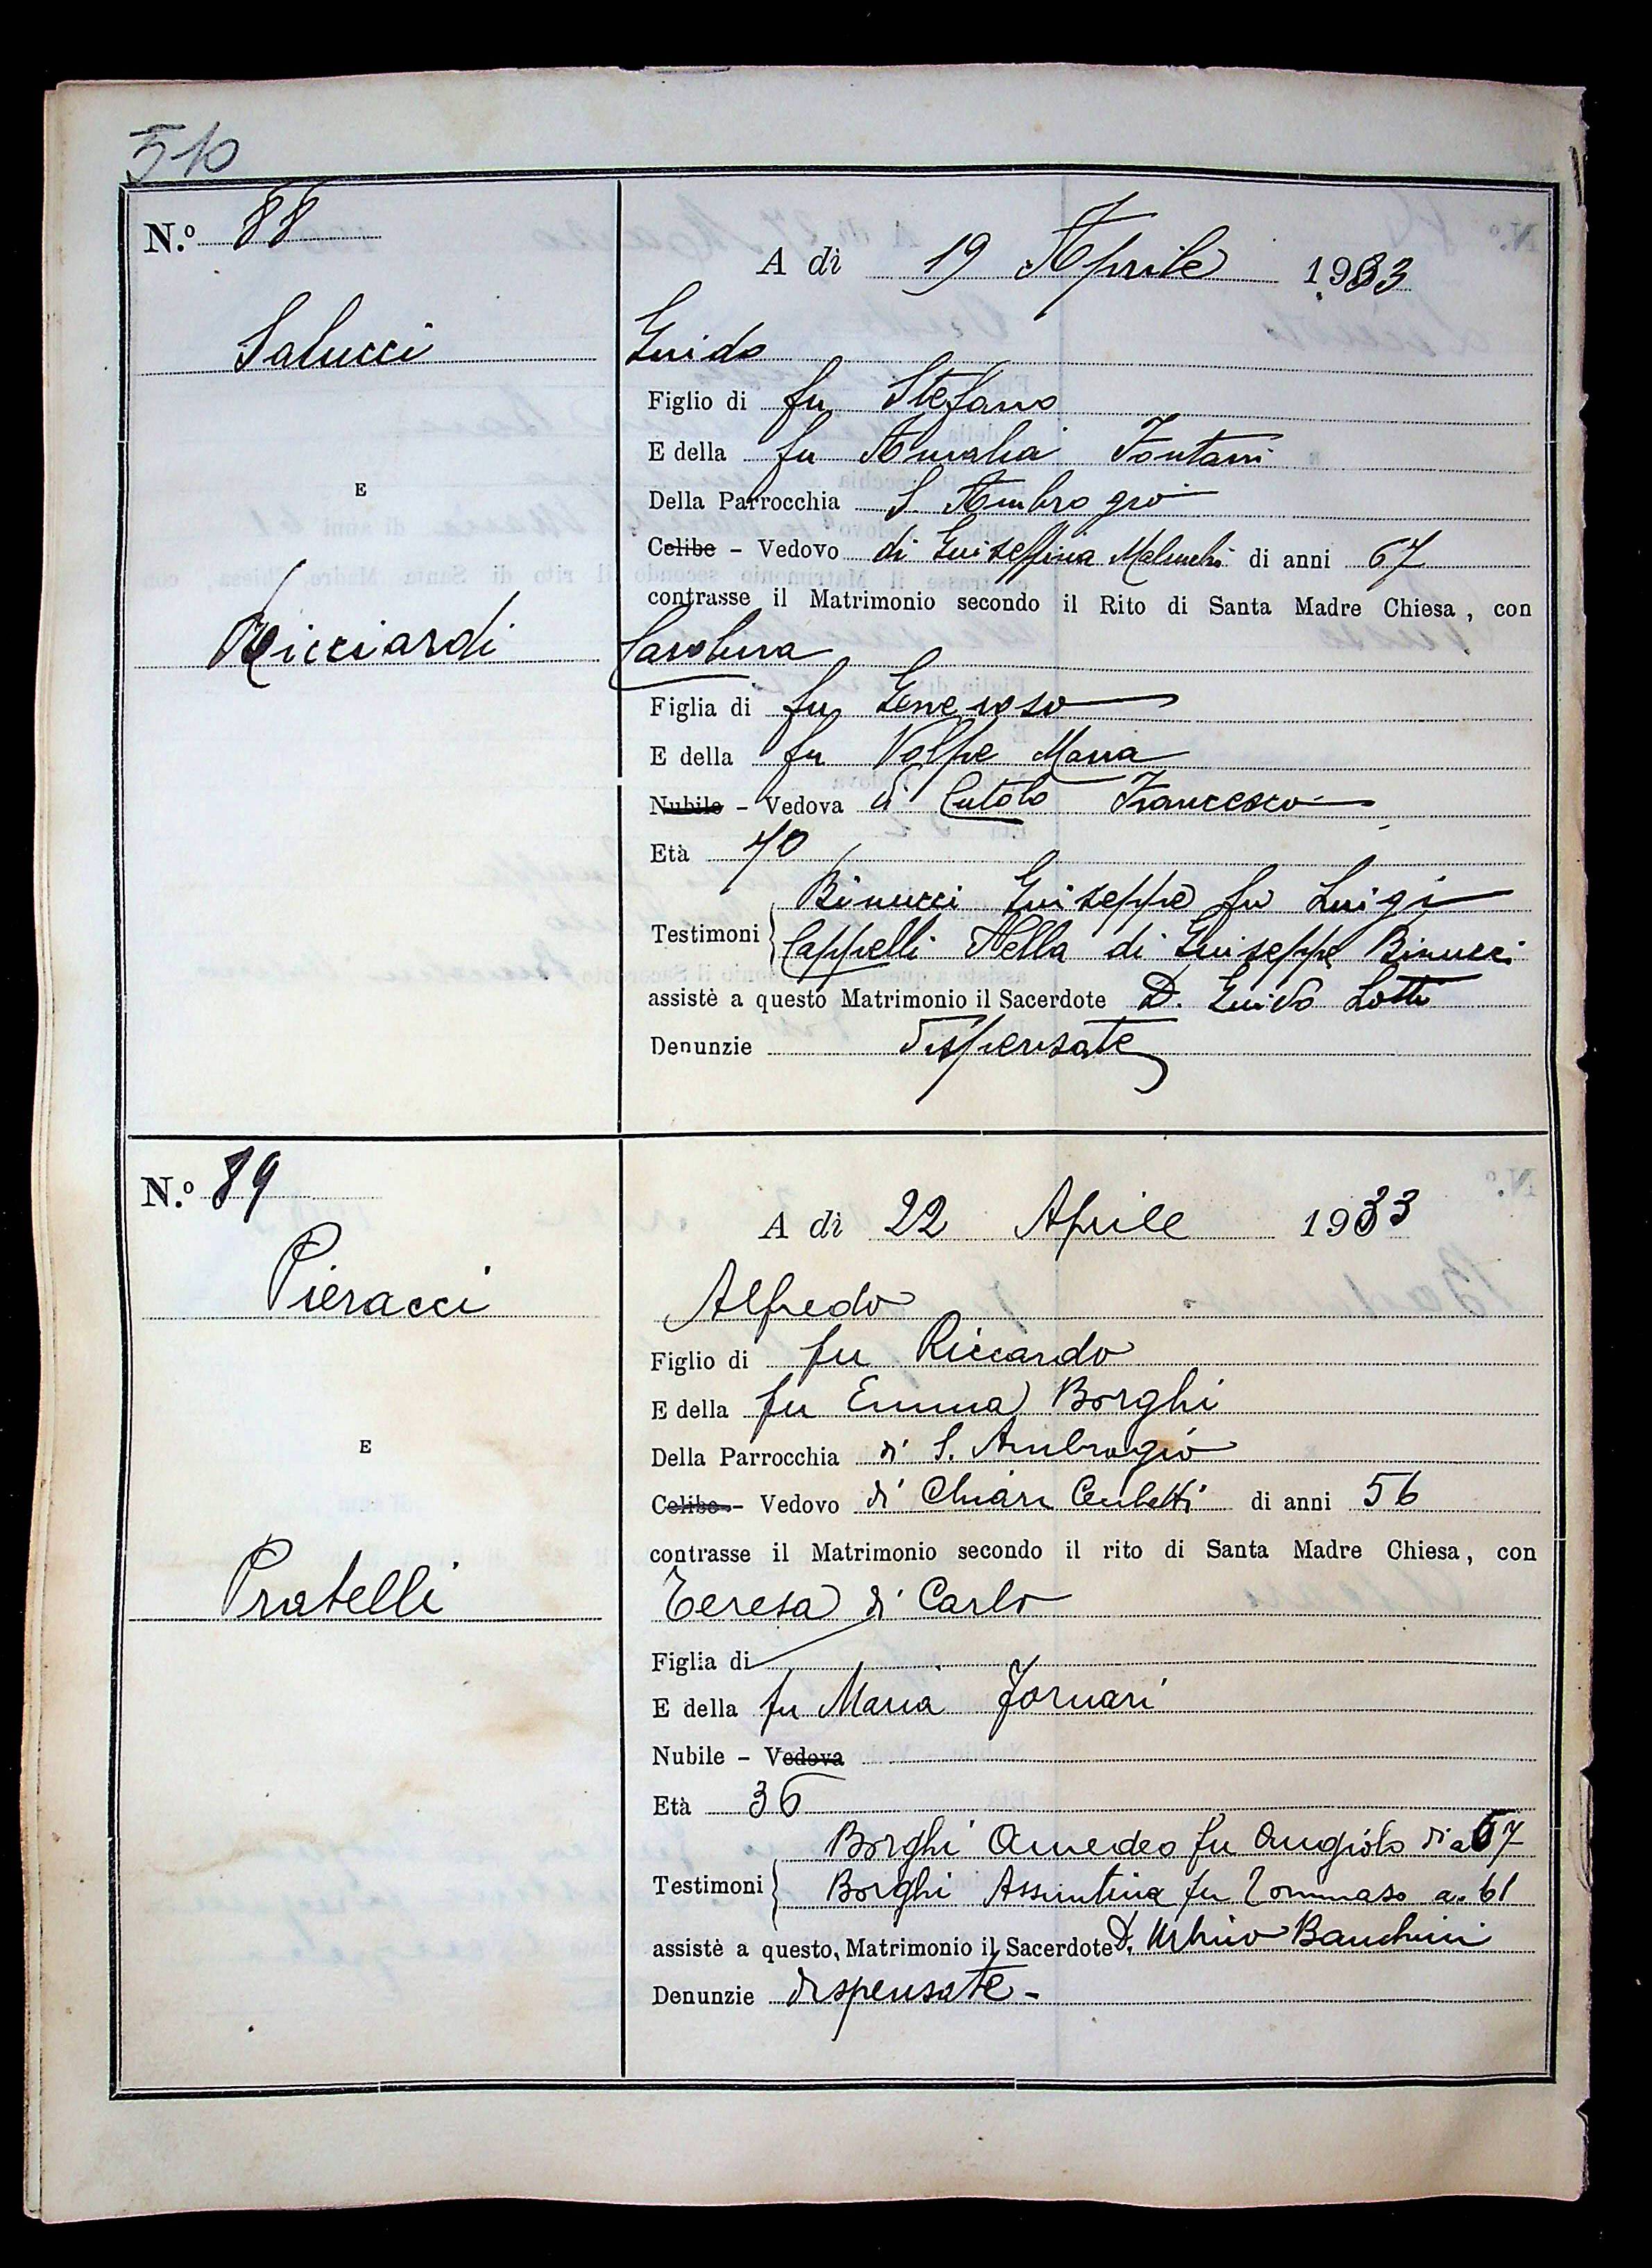 510
N.º 88
A dì 19 Aprile 1933
Salucci
Guido
Figlio di fu Stefano
E della fu Amalia Fontani
Della Parrocchia S. Ambrogio
E
Celibe - Vedovo di Giuseppina Melucchi di anni 67
contrasse il Matrimonio secondo il Rito di Santa Madre Chiesa, con
Ricciardi
Carolina
Figlia di fu Generoso
E della fu Volpe Maria
Nubile - Vedova di Cutolo Francesco
Età 70
Binucci Giuseppe fu Luigi
Testimoni
Cappelli Nella di Giuseppe Binucci
assistè a questo Matrimonio il Sacerdote D. Guido Lotti
Denunzie dispensate
N.º 89
A dì 22 Aprile 1933
Pieracci
Alfredo
Figlio di fu Riccardo
E della fu Emma Borghi
Della Parrocchia di S. Ambrogio
E
Celibe - Vedovo di Chiari di anni 56
contrasse il Matrimonio secondo il rito di Santa Madre Chiesa, con
Pratelli
Teresa di Carlo
Figlia di
E della fu Maria Fornari
Nubile - Vedova
Età 36
Borghi Amedeo fu Angiolo di a 67
Testimoni
Borghi Assuntina fu Tommaso a. 61
assistè a questo Matrimonio il Sacerdote D. Urbino Banchini
Denunzie dispensate -